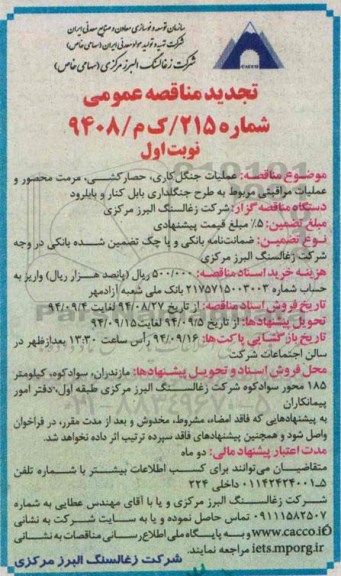 سازمان توسعه و نوسازی معادن و صنایع معدنی ایران
شرکت تهیه و تولید مواد معدنی ایران (سهامی خاص)
شرکت زغالسنگ البرز مرکزی (سهامی خاص)
CACCO
تجدید مناقصه عمومی
شماره ۲۱۵/ک م/۹۴۰۸
نوبت اول
موضوع مناقصه: عملیات جنگل کاری، حصارکشی، مرمت محصور و
عملیات مراقبتی مربوط به طرح جنگلداری بابل کنار و بابلرود
دستگاه مناقصه گزار: شرکت زغالسنگ البرز مرکزی
مبلغ تضمین: ۵٪ مبلغ قیمت پیشنهادی
نوع تضمین: ضمانت‌نامه بانکی و یا چک تضمین شده بانکی در وجه
شرکت زغالسنگ البرز مرکزی
هزینه خرید اسناد مناقصه: ۵۰۰/۰۰۰ ریال (پانصد هزار ریال) واریز به
حساب شماره ۲۱۷۵۷۱۵۰۰۳۰۰۳ بانک ملی شعبه آزادمهر
تاریخ فروش اسناد مناقصه: از تاریخ ۹۴/۰۸/۲۷ لغایت ۹۴/۰۹/۴
تحویل پیشنهادها: از تاریخ ۹۴/۰۹/۵ لغایت ۹۴/۰۹/۱۵
تاریخ بازگشایی پاکت‌ها: ۹۴/۰۹/۱۶ رأس ساعت ۱۳:۳۰ بعدازظهر در
سالن اجتماعات شرکت
محل فروش اسناد و تحویل پیشنهادها: مازندران، سوادکوه، کیلومتر
۱۸۵ محور سوادکوه شرکت زغالسنگ البرز مرکزی طبقه اول، دفتر امور
پیمانکاران
به پیشنهادهایی که فاقد امضاء، مشروط، مخدوش و بعد از مدت مقرر، در فراخوان
واصل شود و همچنین پیشنهادهای فاقد سپرده ترتیب اثر داده نخواهد شد.
مدت اعتبار پیشنهاد مالی: دو ماه
متقاضیان می‌توانند برای کسب اطلاعات بیشتر با شماره تلفن
۰۱۱۴۲۴۲۴۰۰۱-۵ داخلی ۲۲۴
شرکت زغالسنگ البرز مرکزی و یا با آقای مهندس عطایی به شماره
۰۹۱۱۱۵۸۲۵۰۷ تماس حاصل نموده و یا به سایت شرکت به نشانی
www.cacco.ir و به پایگاه ملی اطلاع رسانی مناقصات به نشانی
iets.mporg.ir مراجعه نمایند.
شرکت زغالسنگ البرز مرکزی